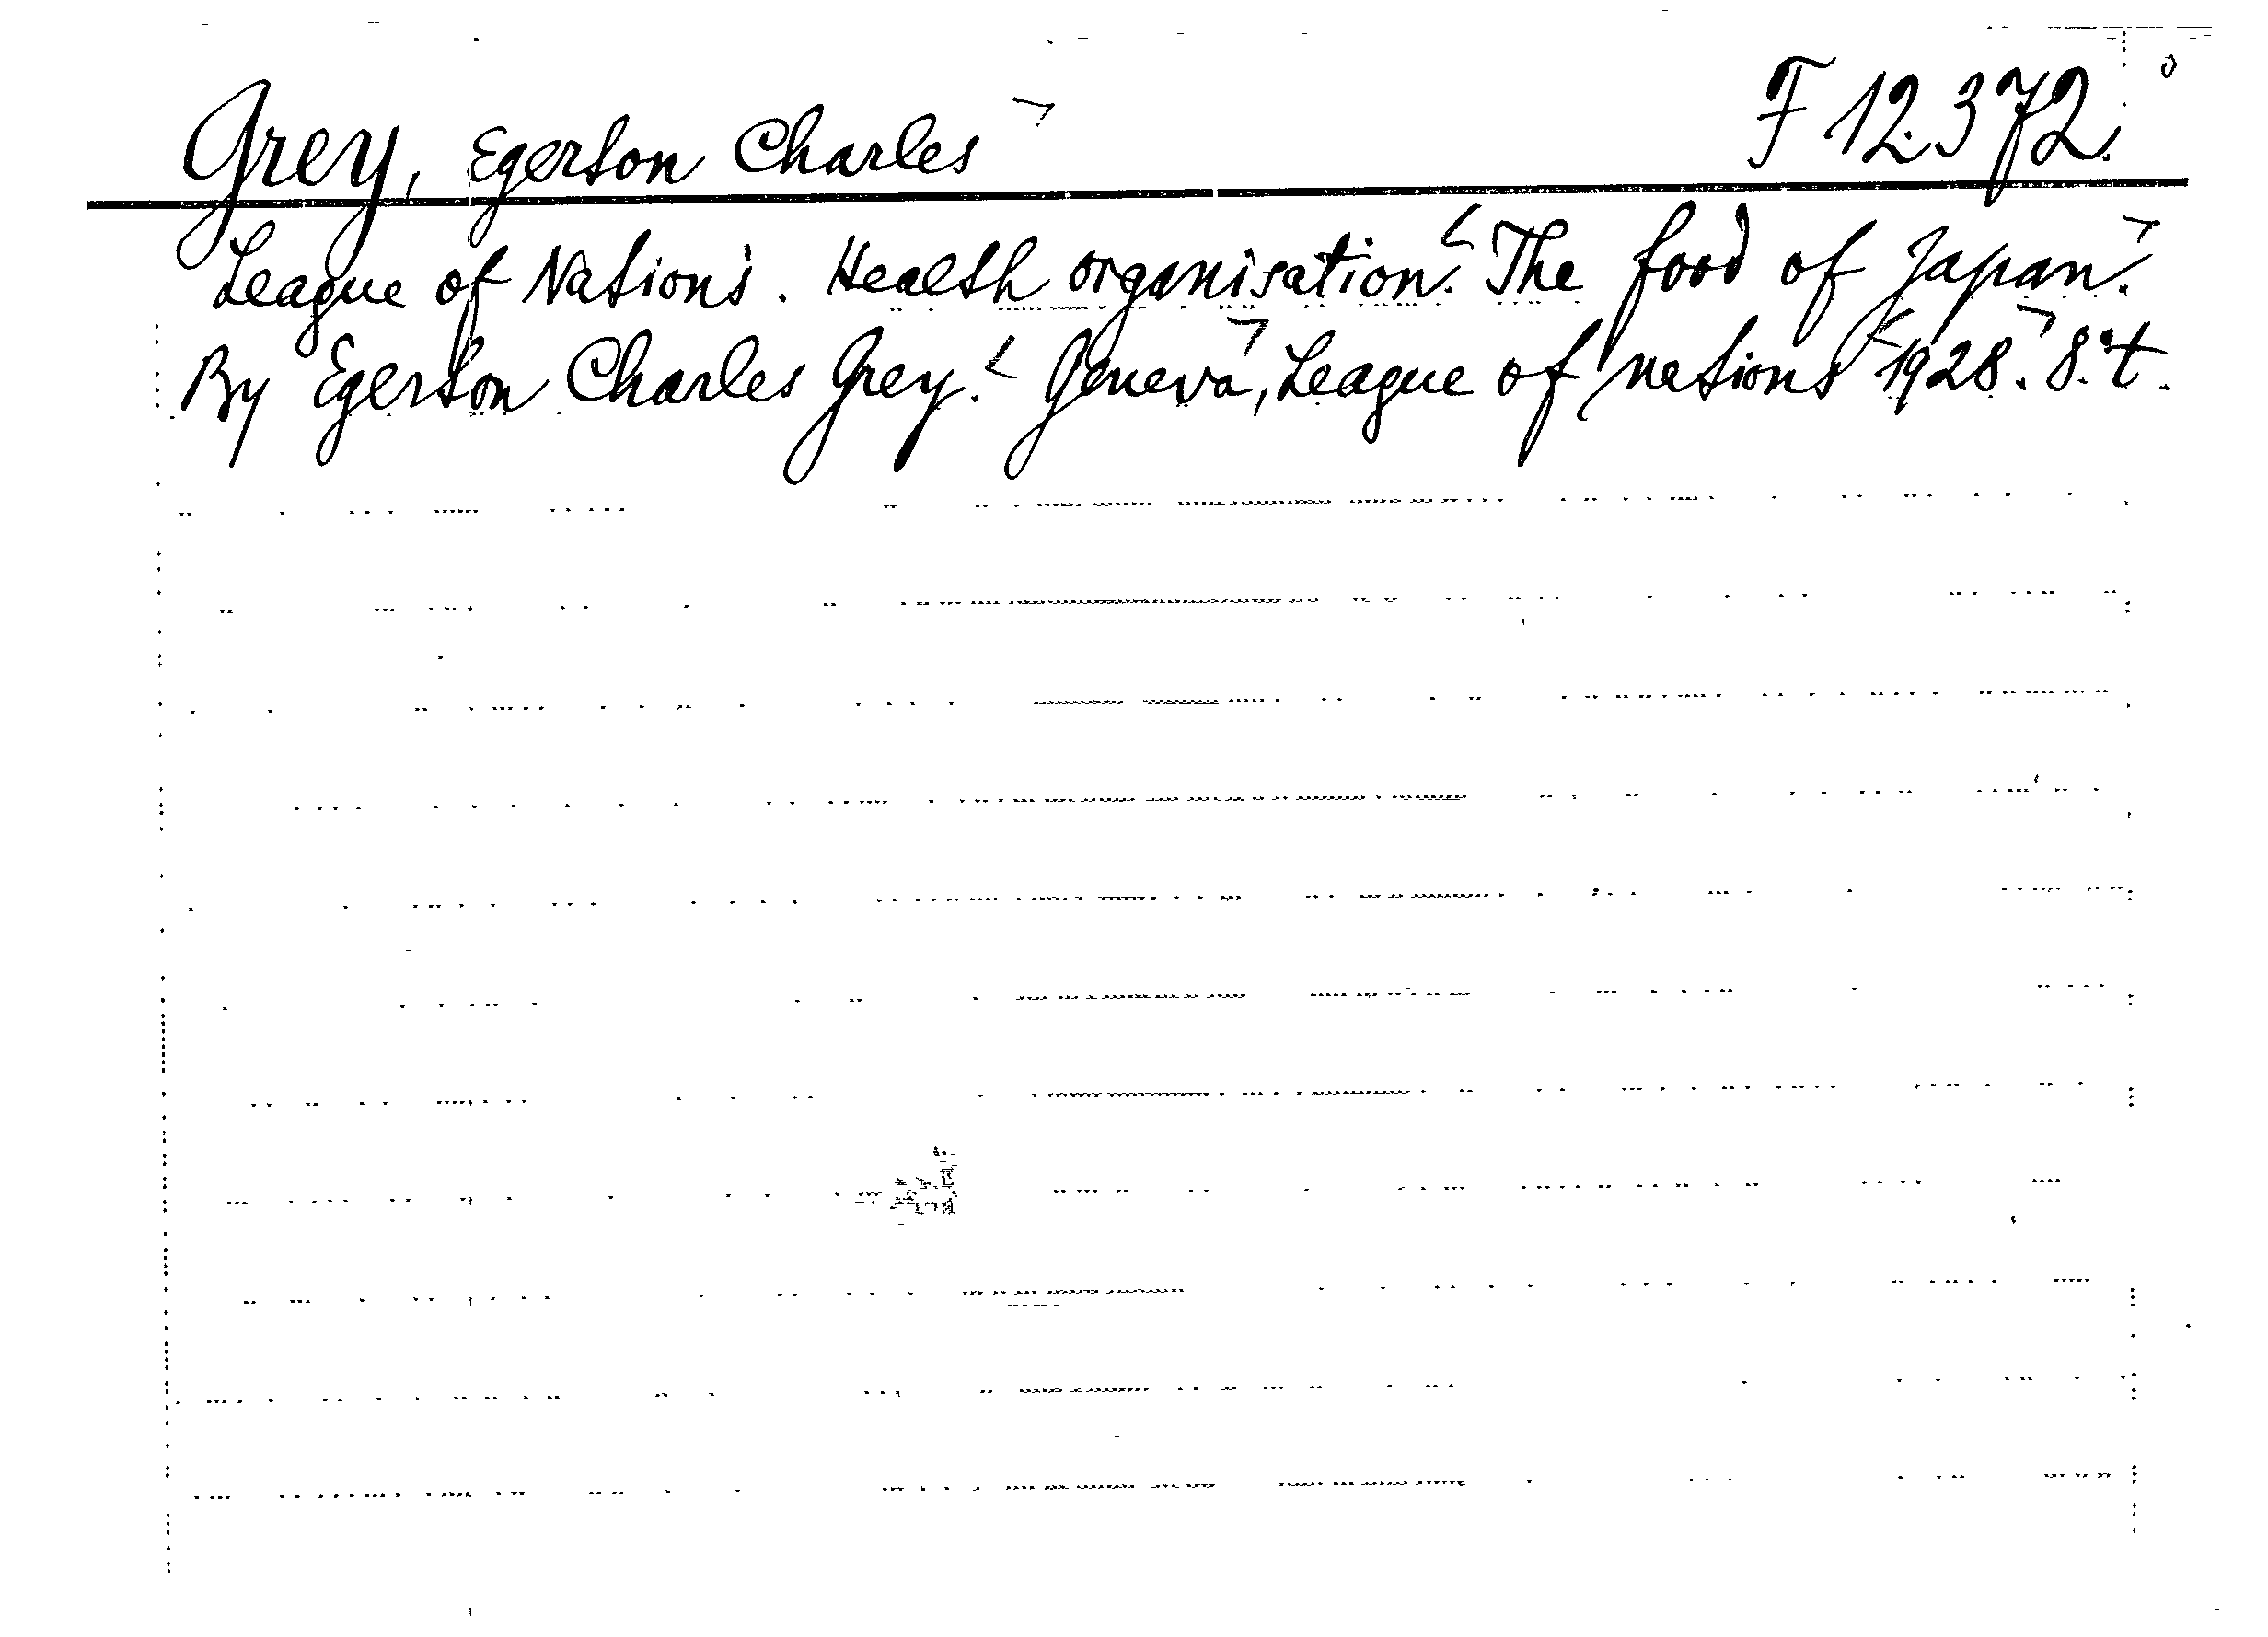 Grey, Egerton Charles F 12.372.
League of Nations. Health organisation. The food of Japan.
By Egerton Charles Grey. Geneva, League of nations 1928. 8.t.